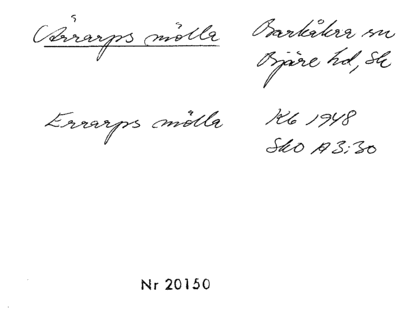 Ärrarps mölla Barkåkra sn
Bjäre hd, Sk
Errarps mölla Kb 1948
SkO A3:30
Nr 20150